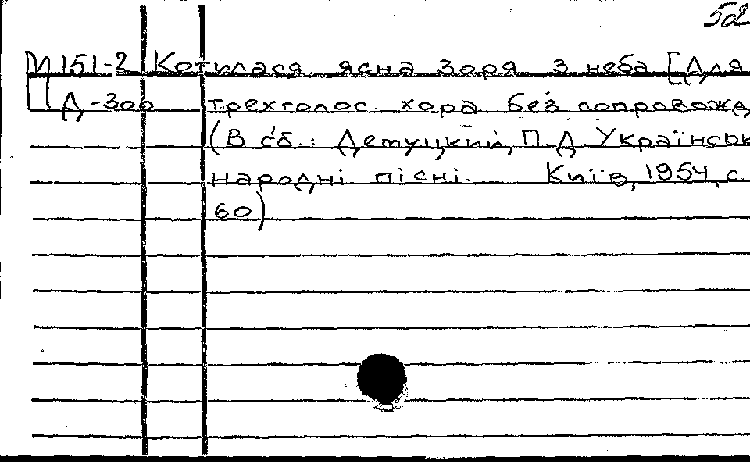 502
М151-2 Котилася ясна зоря з неба [Для
Д-300 трехголос. хора без сопровожд
(В сб.: Демуцкий, П.Д. Українськ
народні пісні. Київ, 1954, с.
60)